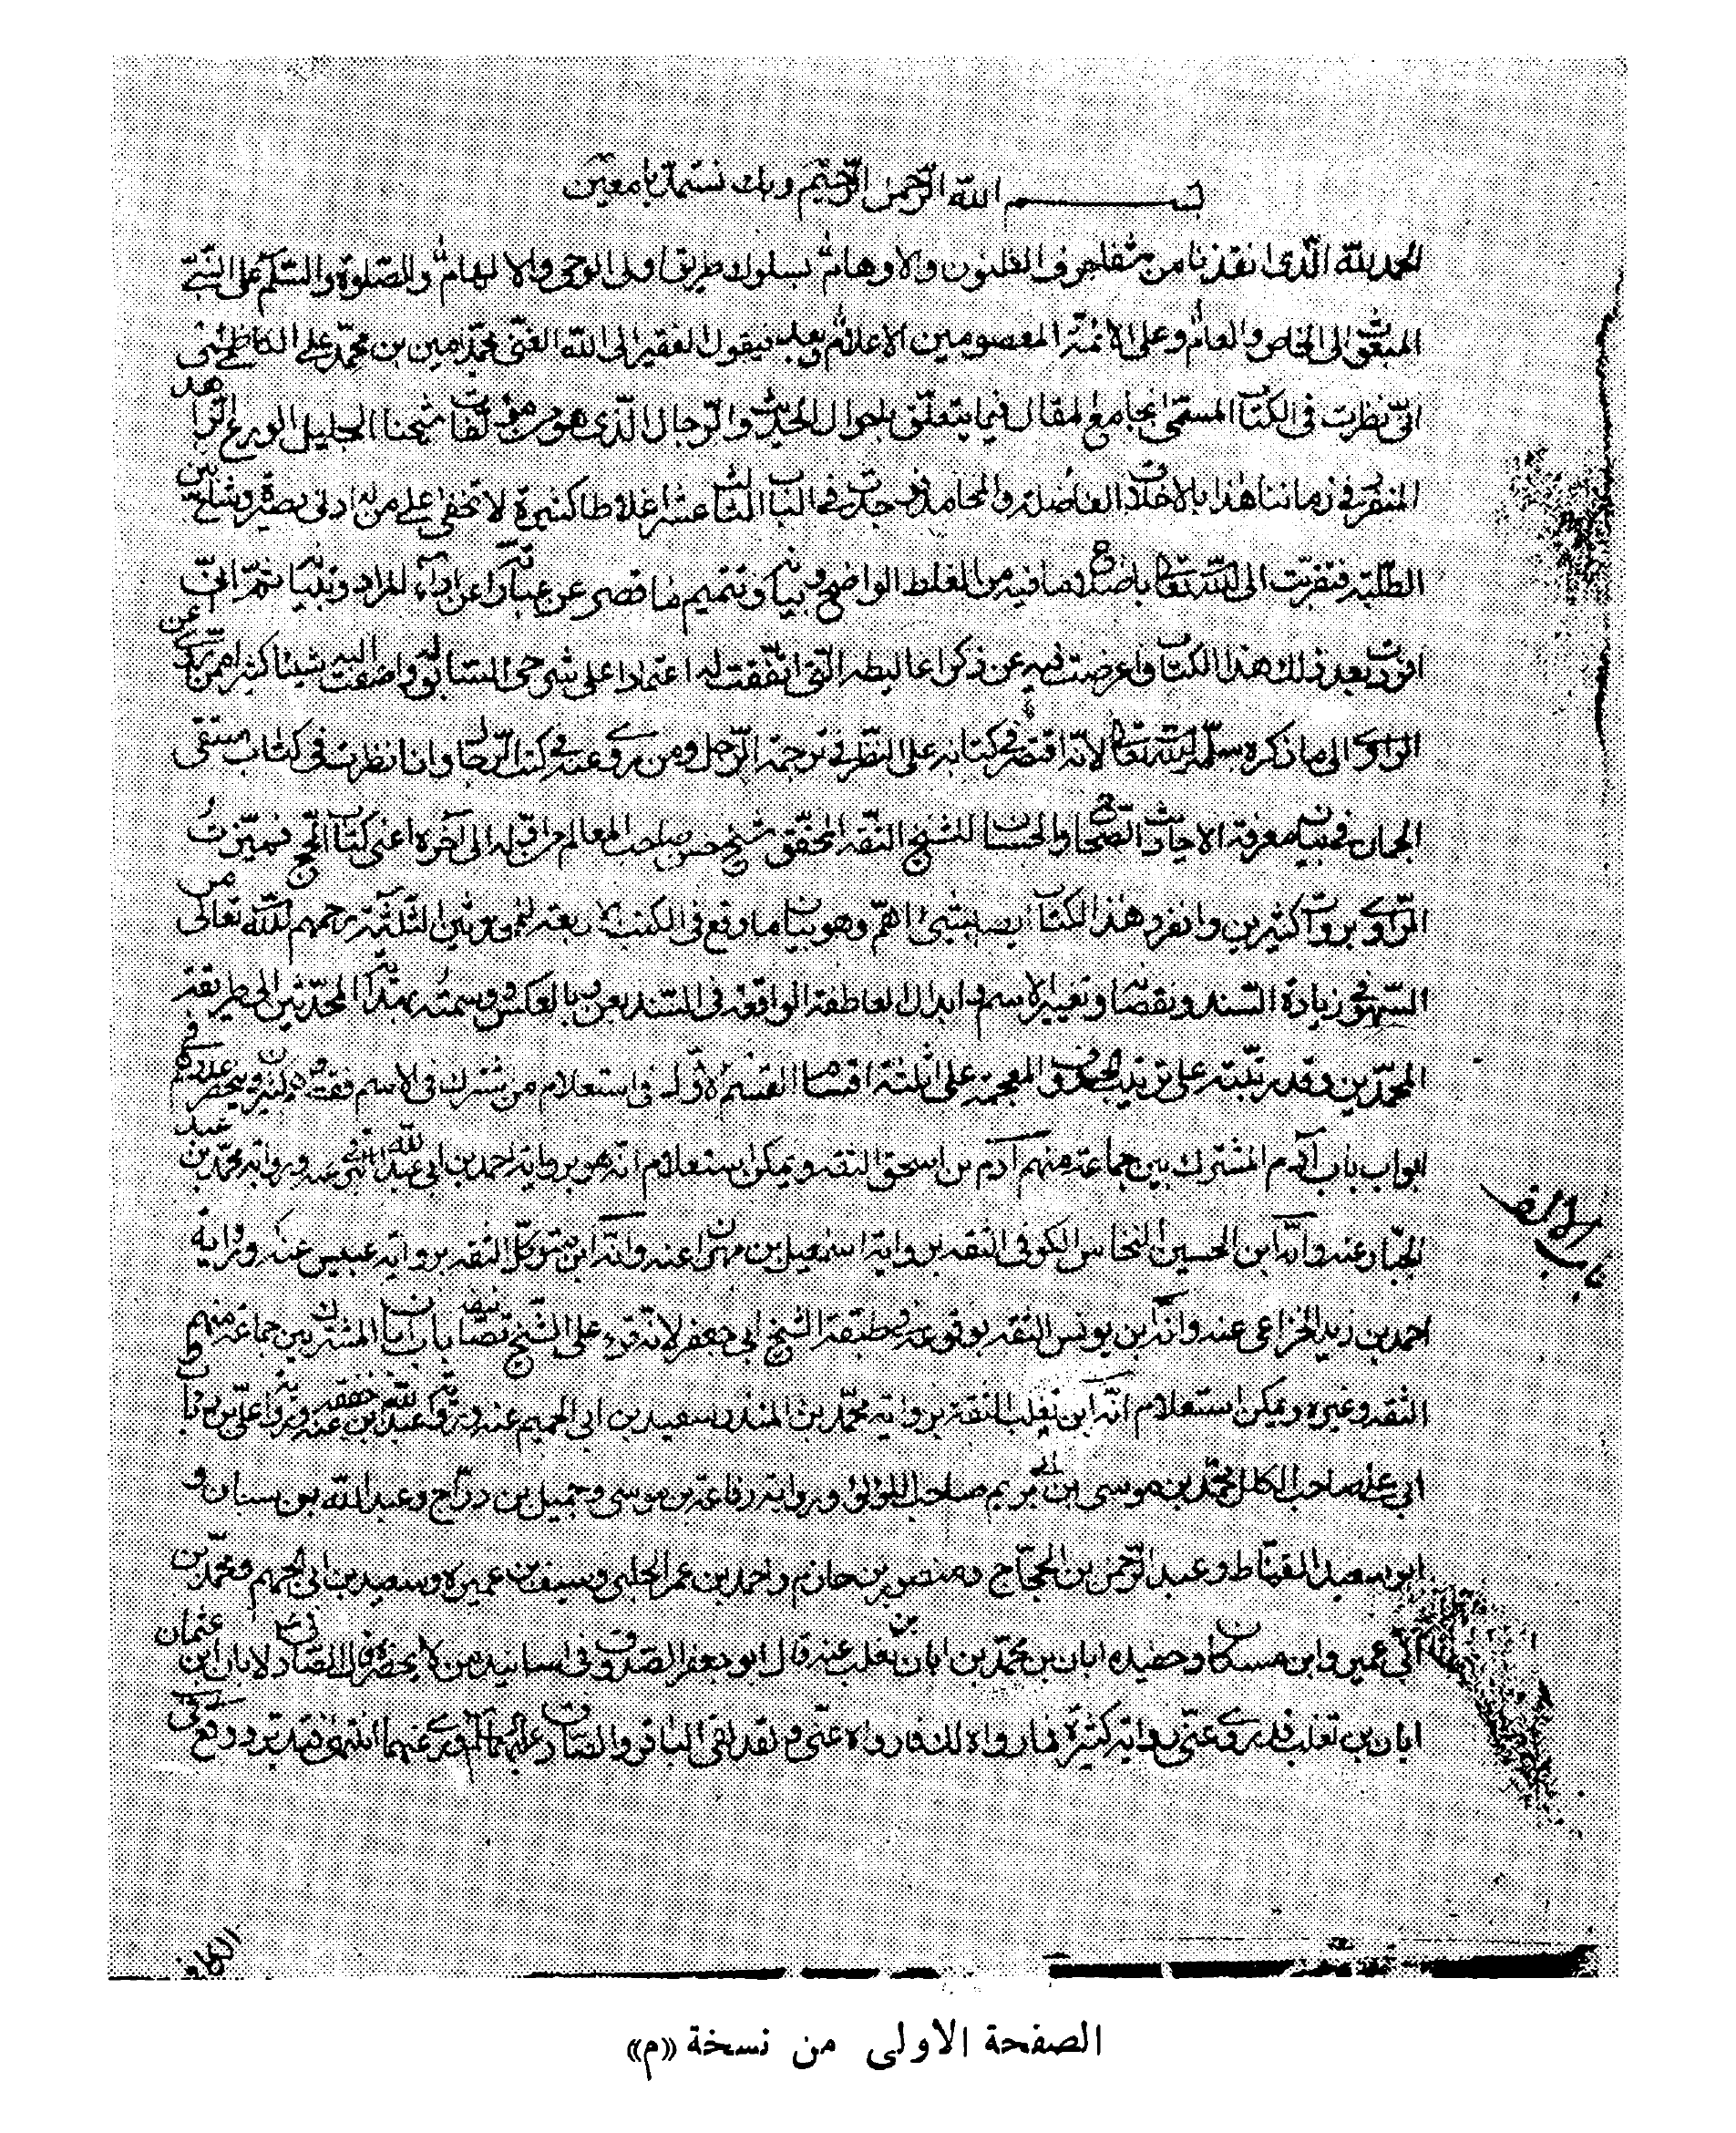 بسم الله الرحمن الرحيم وبك نستعين يا معين
الحمد لله الذى انقذنا من شفا جرف الظنون والاوهام بسلوك طريق اهل الوحى والالهام والصلوة والسلم على النبى
المبعوث الى الخاص والعام وعلى الائمة المعصومين الاعلام وبعد فيقول الفقير الى الله الغنى محمد امين بن محمد على الكاظمى
انى نظرت فى الكتاب المسمى بجامع المقال فيما يتعلق باحوال الحديث والرجال الذى هو من مؤلفات شيخنا الجليل الورع الزاهد
المنفرد فى زماننا هذا بالاخلاق الفاضلة والمحامد فوجدت فى الباب الثانى عشر اغلاطا كثيرة لا تخفى على من له ادنى بصيرة من
الطلبة فتقربت الى الله تعالى باصلاح ما فيه من الغلط الواضح وبيانه وتتميم ما قصر عن عباراته عن اداء المراد وتبيانه ثم انى
افردت بعد ذلك هذا الكتاب واعرضت فيه عن ذكر اغاليطه التى اتفقت له اعتمادا على شرحى السابق واضفت اليه شيئا كثيرا ممن روى عن
الراوى الى ما ذكره سلمه الله تعالى لانه اقتصر فى كتابه على النظر فى ترجمة الرجل ومن روى عنه فى كتب الرجال وانا نظرت فى كتاب منتقى
الجمان فى بيان معرفة الاحاديث الصحاح والحسان للشيخ الثقة المحقق شيخ حسن صاحب المعالم من اوله الى آخره اعنى كتاب الحج فميزت
الراوى برواة كثيرين وانفرد هذا الكتاب ايضا بشئ اهم وهو بيان ما وقع فى الكتب الاربعة للمحمدين الثلثة رحمهم الله تعالى من
السهو فى زيادة السند ونقصانه وتغيير الاسم وابدال العاطفة الواقعة فى السند بعن وبالعكس وسميته بهداية المحدثين الى طريقة
المحمدين وقد رتبته على ترتيب الحروف المعجمة على ثلثة اقسام القسم الاول فى استعلام من شرك فى الاسم فقط
ابواب باب آدم المشترك بين جماعة منهم آدم بن اسحق الثقة ويمكن استعلام انه هو برواية احمد بن ابى عبد الله البرقى عنه وبرواية محمد بن عبد
الجبار عنه وانه ابن الحسين النخاس الكوفى الثقة برواية اسمعيل بن مهران عنه وانه ابن المتوكل الثقة برواية عبيس عنه ورواية
احمد بن زيد الخزاعى عنه وانه ابن يونس الثقة بوقوعه فى طبقة الشيخ ابى جعفر لانه قرء على الشيخ تصانيفه باب ابان المشترك بين جماعة منهم
الثقة وغيره ويمكن استعلام انه ابن تغلب الثقة برواية محمد بن المنذر بن سعيد بن ابى الجهم عنه ورواية عبد الله بن خفقة عنه ورواية على بن رئاب
ابى على صاحب الكلل محمد بن موسى بن ابى مريم صاحب اللؤلؤ ورواية رفاعة بن موسى وجميل بن دراج وعبد الله بن سنان و
ابو سعيد القماط وعبد الرحمن بن الحجاج ومنصور بن حازم واحمد بن عمر الحلبى وسيف بن عميرة وسعيد بن ابى الجهم ومحمد بن
ابى عمير وابن مسكان وحفيده ابان بن محمد بن ابان بن تغلب عنه قال ابو جعفر الصدوق فى اسانيد من لا يحضره قال الصادق لابان ابن عثمان
ابان بن تغلب قد روى عنى رواية كثيرة فما رواه لك فاروه عنى ولقد لقى الباقر والصادق عليهما السلم وروى عنهما انتهى
باب الالف
الصفحة الاولى من نسخة «م»